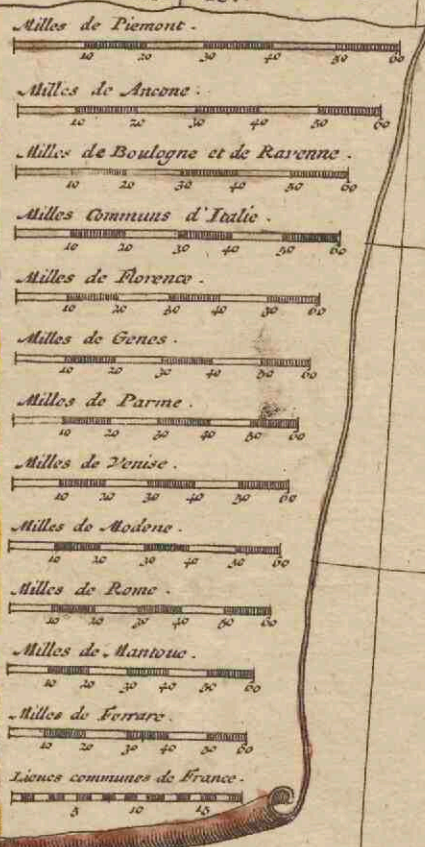 Milles de Piemont.
10 20 30 40 50 60
Milles de Ancone.
10 20 30 40 50 60
Milles de Boulogne et de Ravenne.
10 20 30 40 50 60
Milles Communs d'Italie.
10 20 30 40 50 60
Milles de Florence.
10 20 30 40 50 60
Milles de Genes.
10 20 30 40 50 60
Milles de Parme.
10 20 30 40 50 60
Milles de Venise.
10 20 30 40 50 60
Milles de Modene.
10 20 30 40 50 60
Milles de Rome.
10 20 30 40 50 60
Milles de Mantoue.
10 20 30 40 50 60
Milles de Ferrare.
10 20 30 40 50 60
Lieues communes de France.
5 10 15